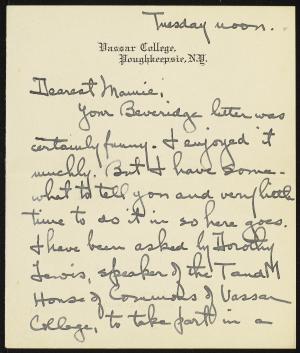 Tuesday noon.
Vassar College,
Poughkeepsie, N.Y.
Dearest Mamie;
Your Beveridge letter was
certainly funny - I enjoyed it
muchly. But I have some-
what to tell you and very little
time to do it in so here goes.
I have been asked by Dorothy
Lewis, speaker of the T and M
House of Commons of Vassar
College, to take part in a